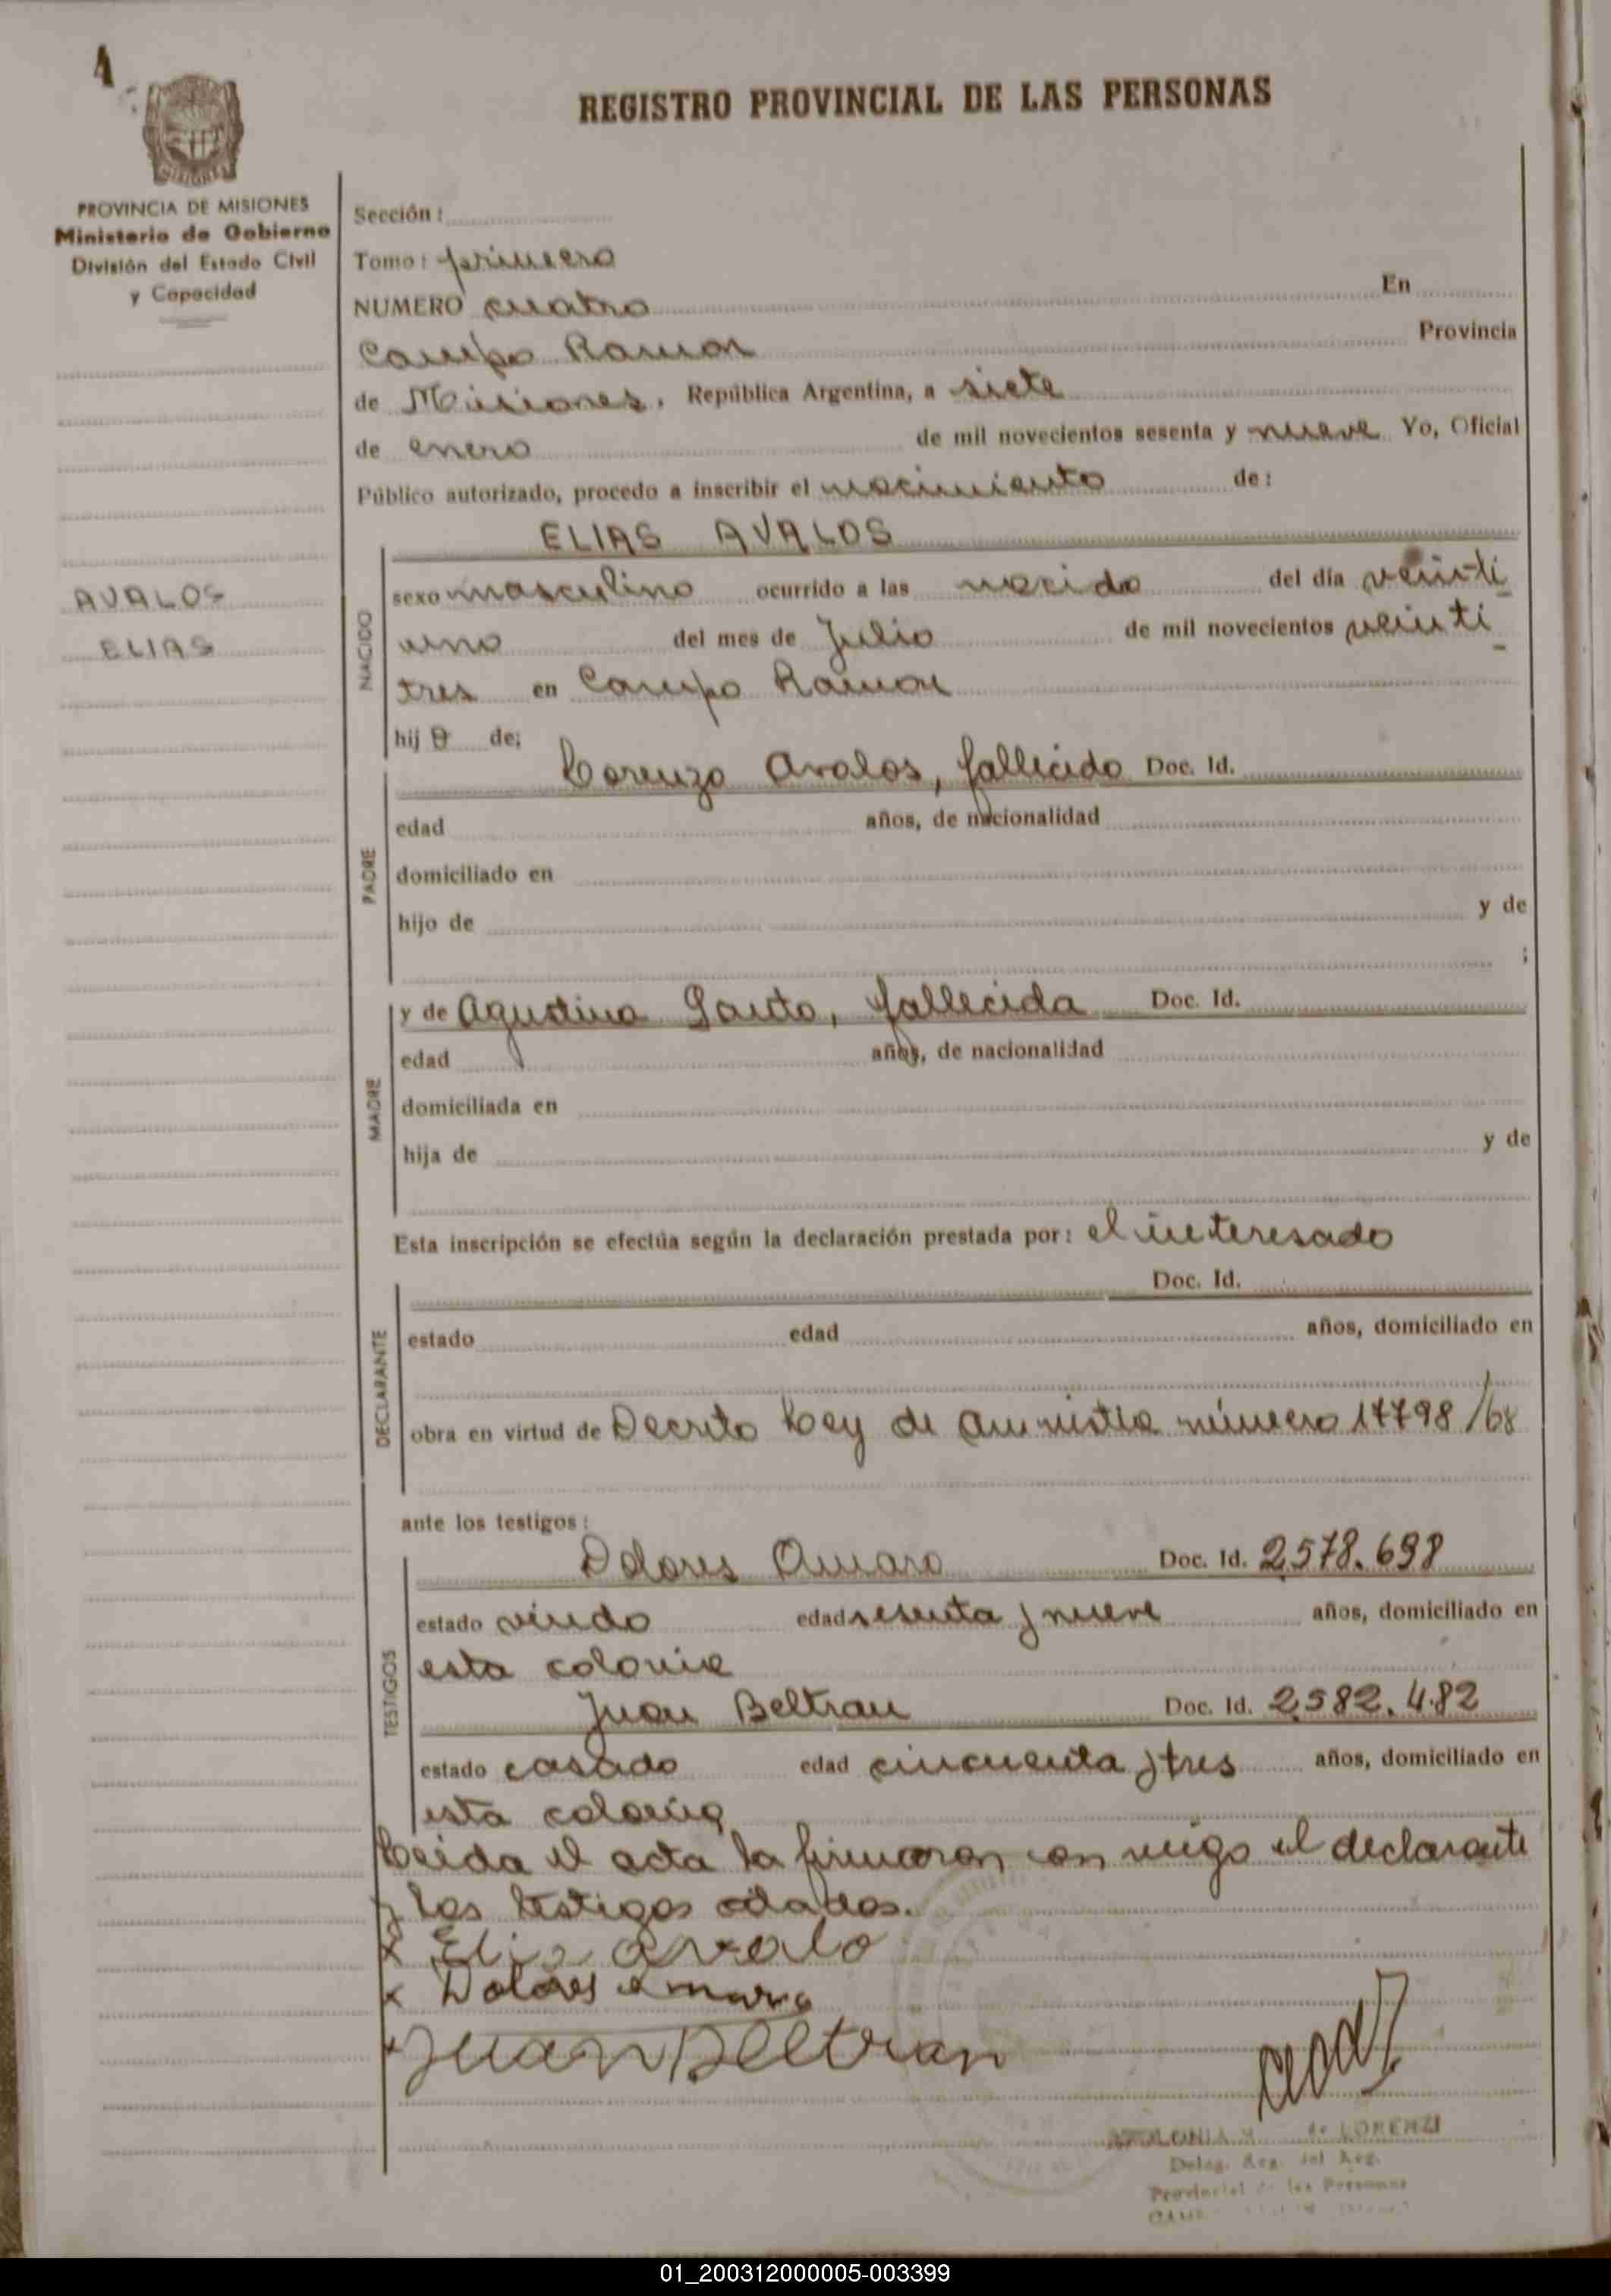 4
REGISTRO PROVINCIAL DE LAS PERSONAS
PROVINCIA DE MISIONES
Ministerio de Gobierno
División del Estado Civil
y Capacidad
AVALOS
ELIAS
Sección:
Tomo: primero
NUMERO cuatro En
Campo Ramon Provincia
de Misiones. República Argentina, a siete
de enero de mil novecientos sesenta y nueve Yo, Oficial
Público autorizado, procedo a inscribir el nacimiento de:
ELIAS AVALOS
NACIDO
sexo masculino ocurrido a las nacido del día veinti
uno del mes de Julio de mil novecientos veinti
tres en Campo Ramon
hijo de;
PADRE
Lorenzo Avalos, fallecido Doc. Id.
edad años, de nacionalidad
domiciliado en
hijo de y de
;
MADRE
y de Agustina Santo, fallecida Doc. Id.
edad años, de nacionalidad
domiciliada en
hija de y de
Esta inscripción se efectúa según la declaración prestada por: el interesado
DECLARANTE
Doc. Id.
estado edad años, domiciliado en
obra en virtud de Decreto Ley de amnistia número 17798/68
ante los testigos:
TESTIGOS
Dolores Amaro Doc. Id. 2578.698
estado viudo edad sesenta y nueve años, domiciliado en
esta colonia
Juan Beltran Doc. Id. 2582.482
estado casado edad cincuenta y tres años, domiciliado en
esta colonia
Leida el acta la firmaron con migo el declarante
y los testigos citados.
x Elia avalo
x Dolores amaro
x Juan Beltran
de LORENZI
Deleg. Reg. del Reg.
Provincial de las Personas
01_200312000005-003399